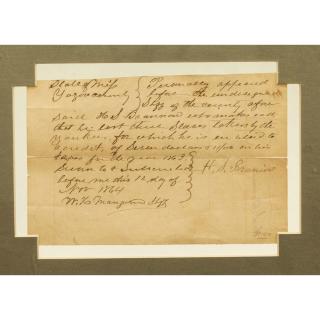 State of Miss } Personally appeared
Yazoo County } before the undersigned
Shff of the county afore
said H S Brannon who makes oath
that he lost three Slaves taken by the
Yankees, for which he is entitled to
a credit, of Seven dollars & 50/100 on his
taxes for the year 1863
Sworn to & Subscribed } H. S. Brannon
before me this 12 day of
Nov 1864
W. H. Mangum Shff